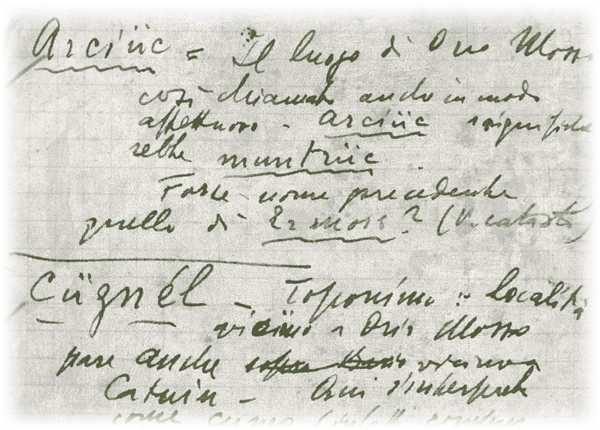 Arciüc = Il luogo di Orio Mosso
così chiamato anche in modo
affettuoso - arciüc significhe
rebbe muntrüc.
Forse nome precedente
quello di Er moss? (V. catasto)
Cügnél - Toponimo : località
vicino a Orio Mosso
pare anche vicino a
- Qui s'interpreta
come